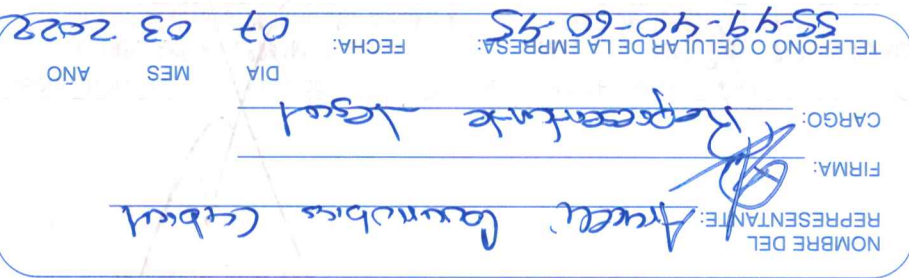 NOMBRE DEL
REPRESENTANTE: Araceli Cabriel
FIRMA:
CARGO: Representante Legal
DIA MES AÑO
TELEFONO O CELULAR DE LA EMPRESA: FECHA:
55-49-40-60-45 07 03 2022